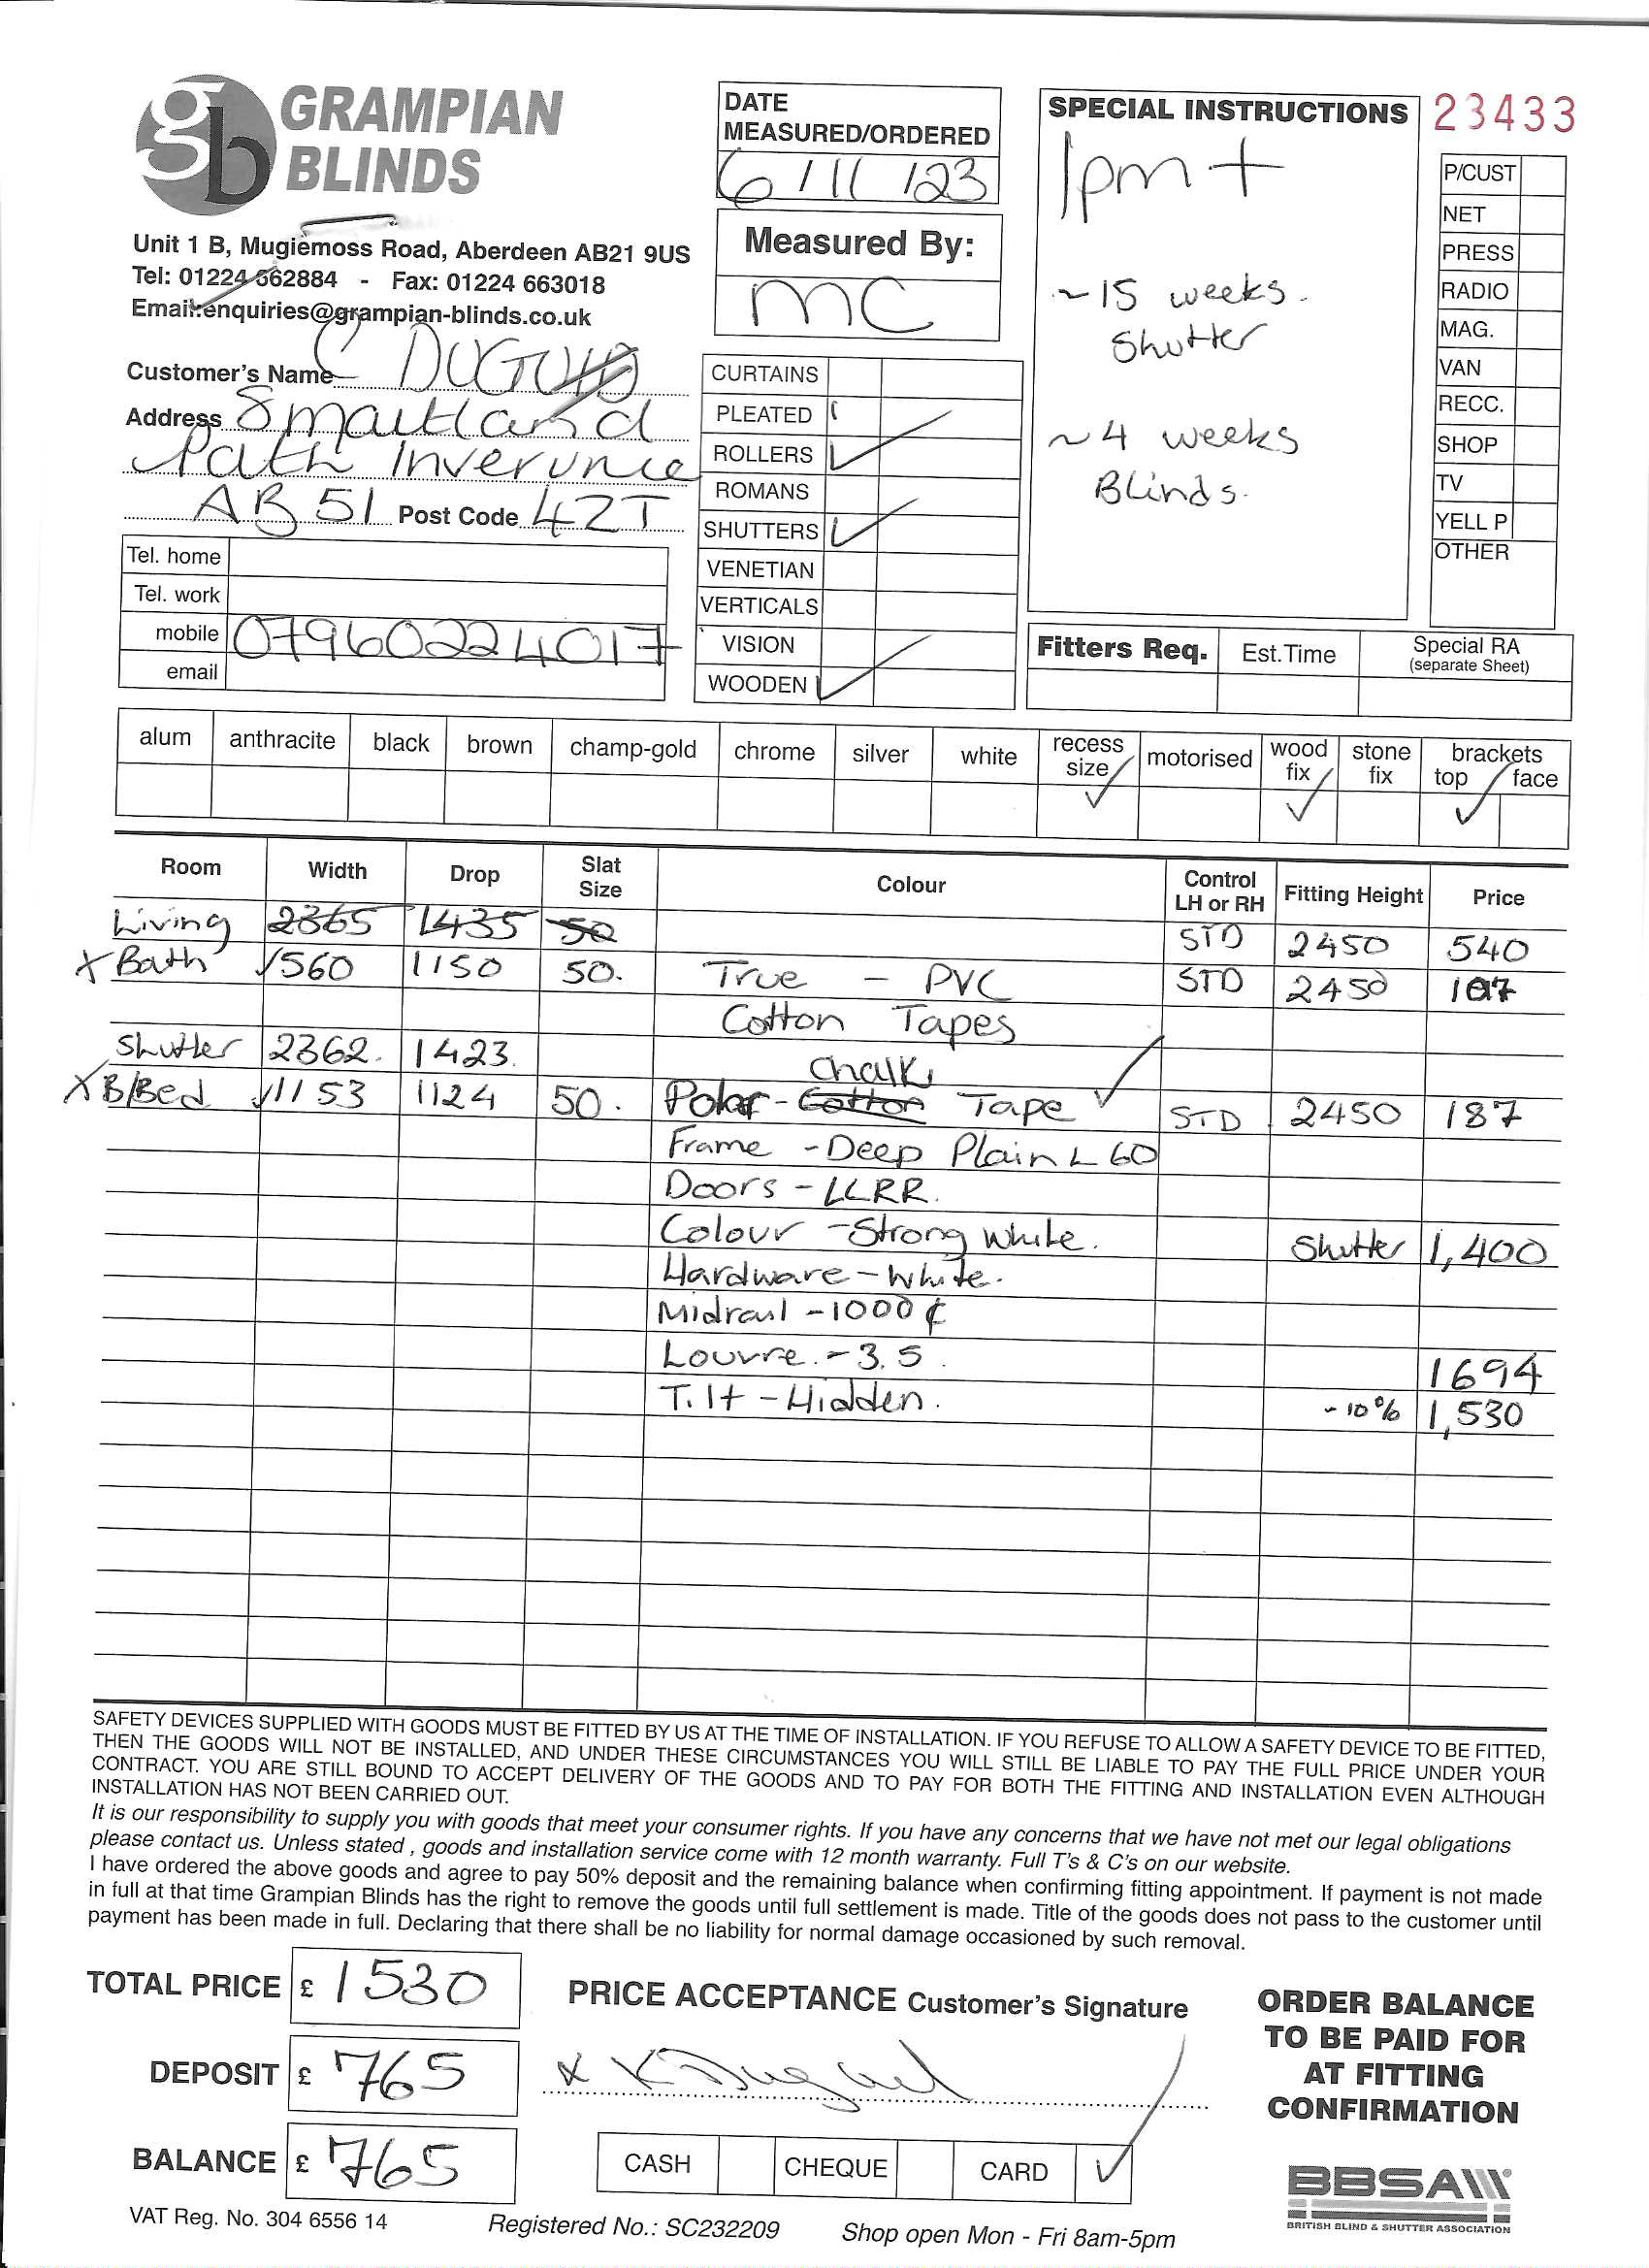 gb GRAMPIAN BLINDS
Unit 1 B, Mugiemoss Road, Aberdeen AB21 9US
Tel: 01224 662884 - Fax: 01224 663018
Email:enquiries@grampian-blinds.co.uk
Customer's Name C DUGUID
Address 8 Maitland
Path Inverurie
AB 51 Post Code 4ZT
Tel. home
Tel. work
mobile 07960224017
email
DATE MEASURED/ORDERED
6/11/23
Measured By:
MC
CURTAINS
PLEATED
ROLLERS ✓
ROMANS
SHUTTERS ✓
VENETIAN
VERTICALS
VISION
WOODEN ✓
SPECIAL INSTRUCTIONS
1pm +
~15 weeks.
Shutter
~4 weeks
Blinds.
23433
P/CUST
NET
PRESS
RADIO
MAG.
VAN
RECC.
SHOP
TV
YELL P
OTHER
Fitters Req. Est.Time Special RA (separate Sheet)
alum anthracite black brown champ-gold chrome silver white recess size ✓ motorised wood fix ✓ stone fix brackets top ✓ face
Room Width Drop Slat Size Colour Control LH or RH Fitting Height Price
Living 2365 1435 50 STD 2450 540
X Bath ✓560 1150 50. True - PVC STD 2450 107
Cotton Tapes
Shutter 2362. 1423. Chalk
X B/Bed ✓1153 1124 50. Polar - Cotton Tape ✓ STD 2450 187
Frame - Deep Plain L 60
Doors - LLRR.
Colour - Strong White. Shutter 1,400
Hardware - White.
Midrail - 1000 ¢
Louvre. - 3.5 1694
Tilt - Hidden. - 10% 1,530
SAFETY DEVICES SUPPLIED WITH GOODS MUST BE FITTED BY US AT THE TIME OF INSTALLATION. IF YOU REFUSE TO ALLOW A SAFETY DEVICE TO BE FITTED,
THEN THE GOODS WILL NOT BE INSTALLED, AND UNDER THESE CIRCUMSTANCES YOU WILL STILL BE LIABLE TO PAY THE FULL PRICE UNDER YOUR
CONTRACT. YOU ARE STILL BOUND TO ACCEPT DELIVERY OF THE GOODS AND TO PAY FOR BOTH THE FITTING AND INSTALLATION EVEN ALTHOUGH
INSTALLATION HAS NOT BEEN CARRIED OUT.
It is our responsibility to supply you with goods that meet your consumer rights. If you have any concerns that we have not met our legal obligations
please contact us. Unless stated , goods and installation service come with 12 month warranty. Full T's & C's on our website.
I have ordered the above goods and agree to pay 50% deposit and the remaining balance when confirming fitting appointment. If payment is not made
in full at that time Grampian Blinds has the right to remove the goods until full settlement is made. Title of the goods does not pass to the customer until
payment has been made in full. Declaring that there shall be no liability for normal damage occasioned by such removal.
TOTAL PRICE £ 1530
DEPOSIT £ 765
BALANCE £ 765
PRICE ACCEPTANCE Customer's Signature
CASH CHEQUE CARD ✓
ORDER BALANCE
TO BE PAID FOR
AT FITTING
CONFIRMATION
BBSA
BRITISH BLIND & SHUTTER ASSOCIATION
VAT Reg. No. 304 6556 14 Registered No.: SC232209 Shop open Mon - Fri 8am-5pm